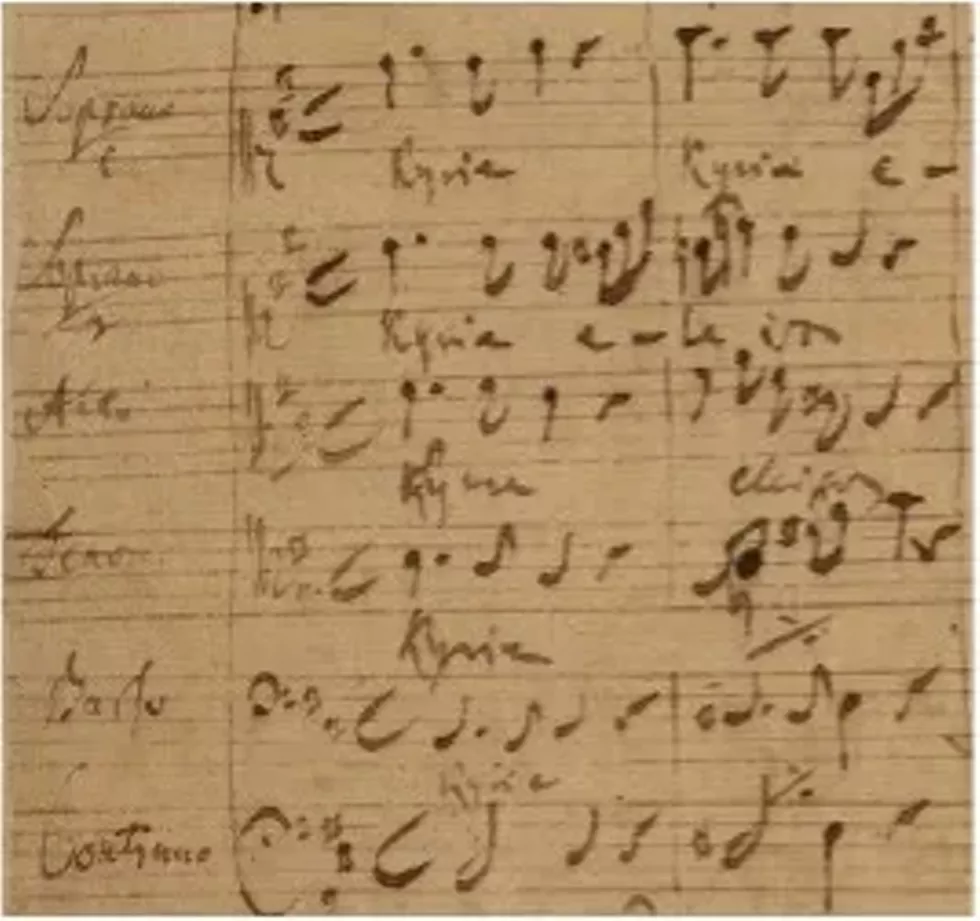 Soprano
1
Kyrie Kyrie e -
Soprano
2
Kyrie e - le ison
Alto
Kyrie eleison
Tenor
Kyrie
Basso
Kyrie
Continuo